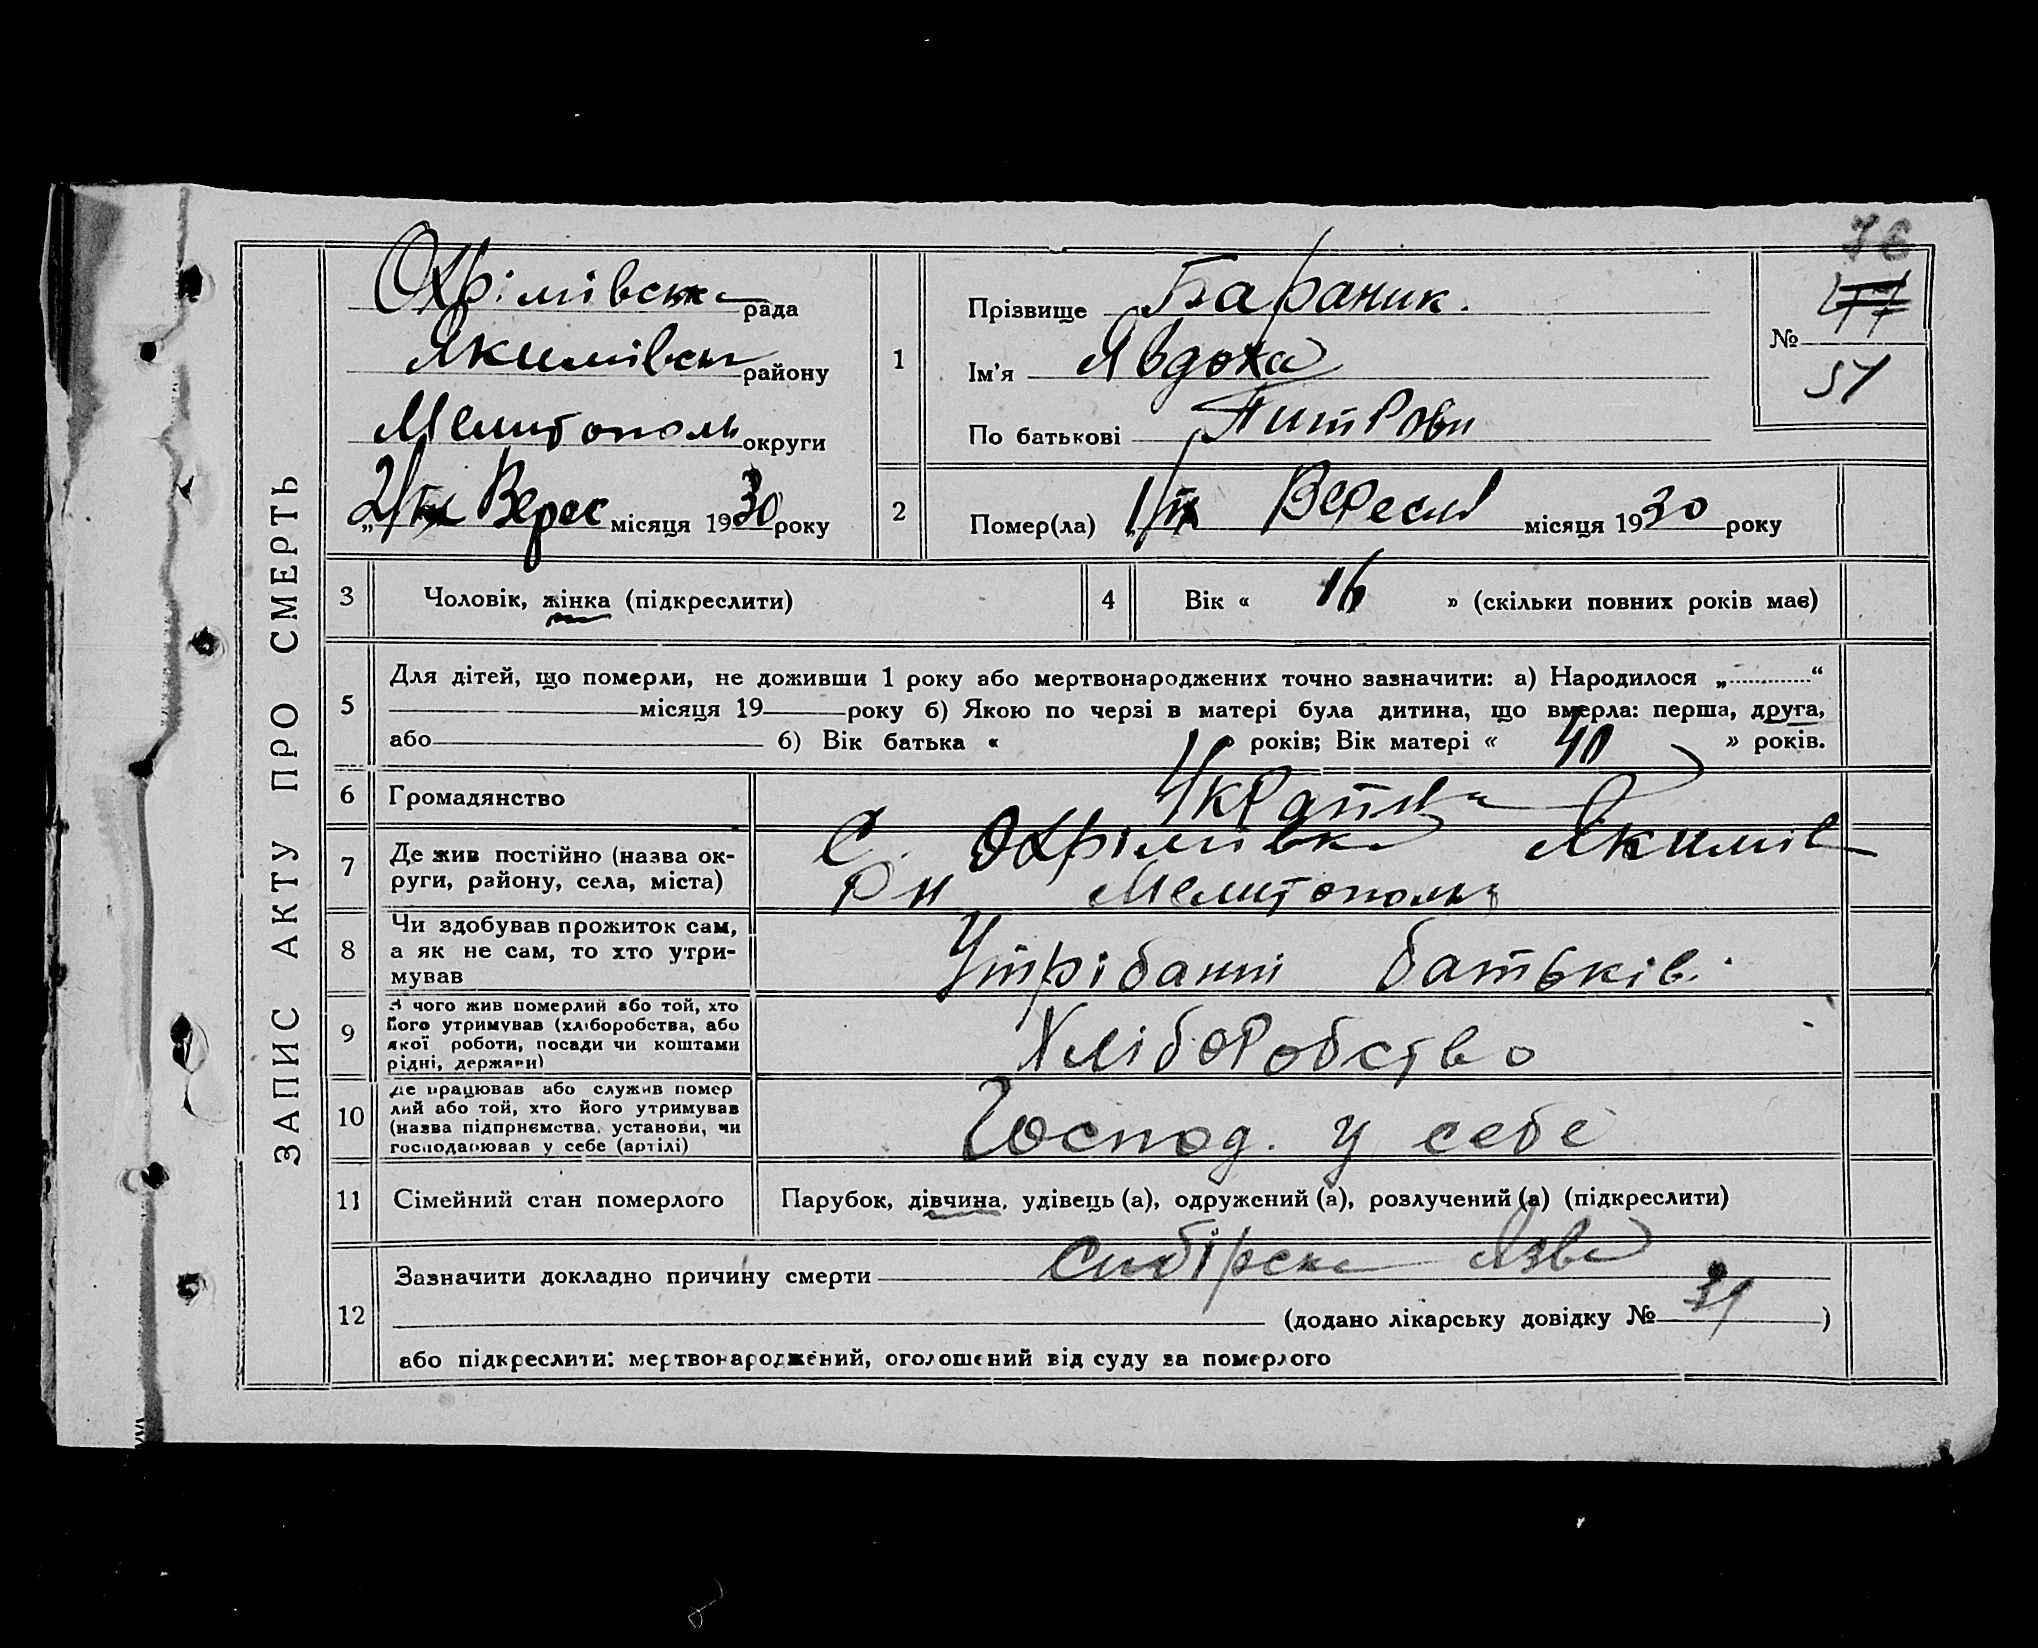 ЗАПИС АКТУ ПРО СМЕРТЬ
Охрімівська рада
Якимівськ району
Мелитополь округи
„2/IX Верес місяця 1930 року
1
Прізвище Бараник.
Ім'я Явдоха
По батькові Питрови
76
№
51
2
Помер(ла) 1/IX Вересня місяця 1930 року
3 Чоловік, жінка (підкреслити)
4 Вік « 16 » (скільки повних років має)
5 Для дітей, що померли, не доживши 1 року або мертвонароджених точно зазначити: а) Народилося „ “
місяця 19 року б) Якою по черзі в матері була дитина, що вмерла: перша, друга,
або б) Вік батька « » років; Вік матері « 40 » років.
6 Громадянство Українка
7 Де жив постійно (назва ок-
руги, району, села, міста)
С. Охрімівка Якимів
Р н Мелитополь
8 Чи здобував прожиток сам,
а як не сам, то хто утри-
мував
Утрібанні батьків.
9 З чого жив померлий або той, хто
його утримував (хліборобства, або
якої роботи, посади чи коштами
рідні, держави)
Хліборобство
10 Де працював або служив помер
лий або той, хто його утримував
(назва підприємства, установи, чи
господарював у себе (артілі)
Господ. у себе
11 Сімейний стан померлого Парубок, дівчина, удівець (а), одружений (а), розлучений (а) (підкреслити)
12 Зазначити докладно причину смерти Сибірска Язва
(додано лікарську довідку № 31 )
або підкреслити: мертвонароджений, оголошений від суду за померлого